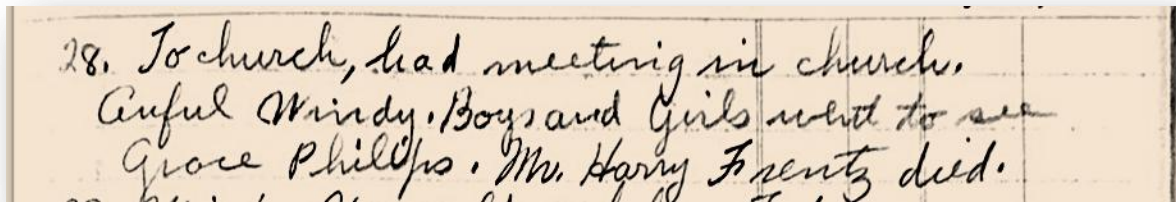 28. To church, had meeting in church.
Awful Windy. Boys and Girls went to see
Grace Philips. Mr. Harry Frentz died.